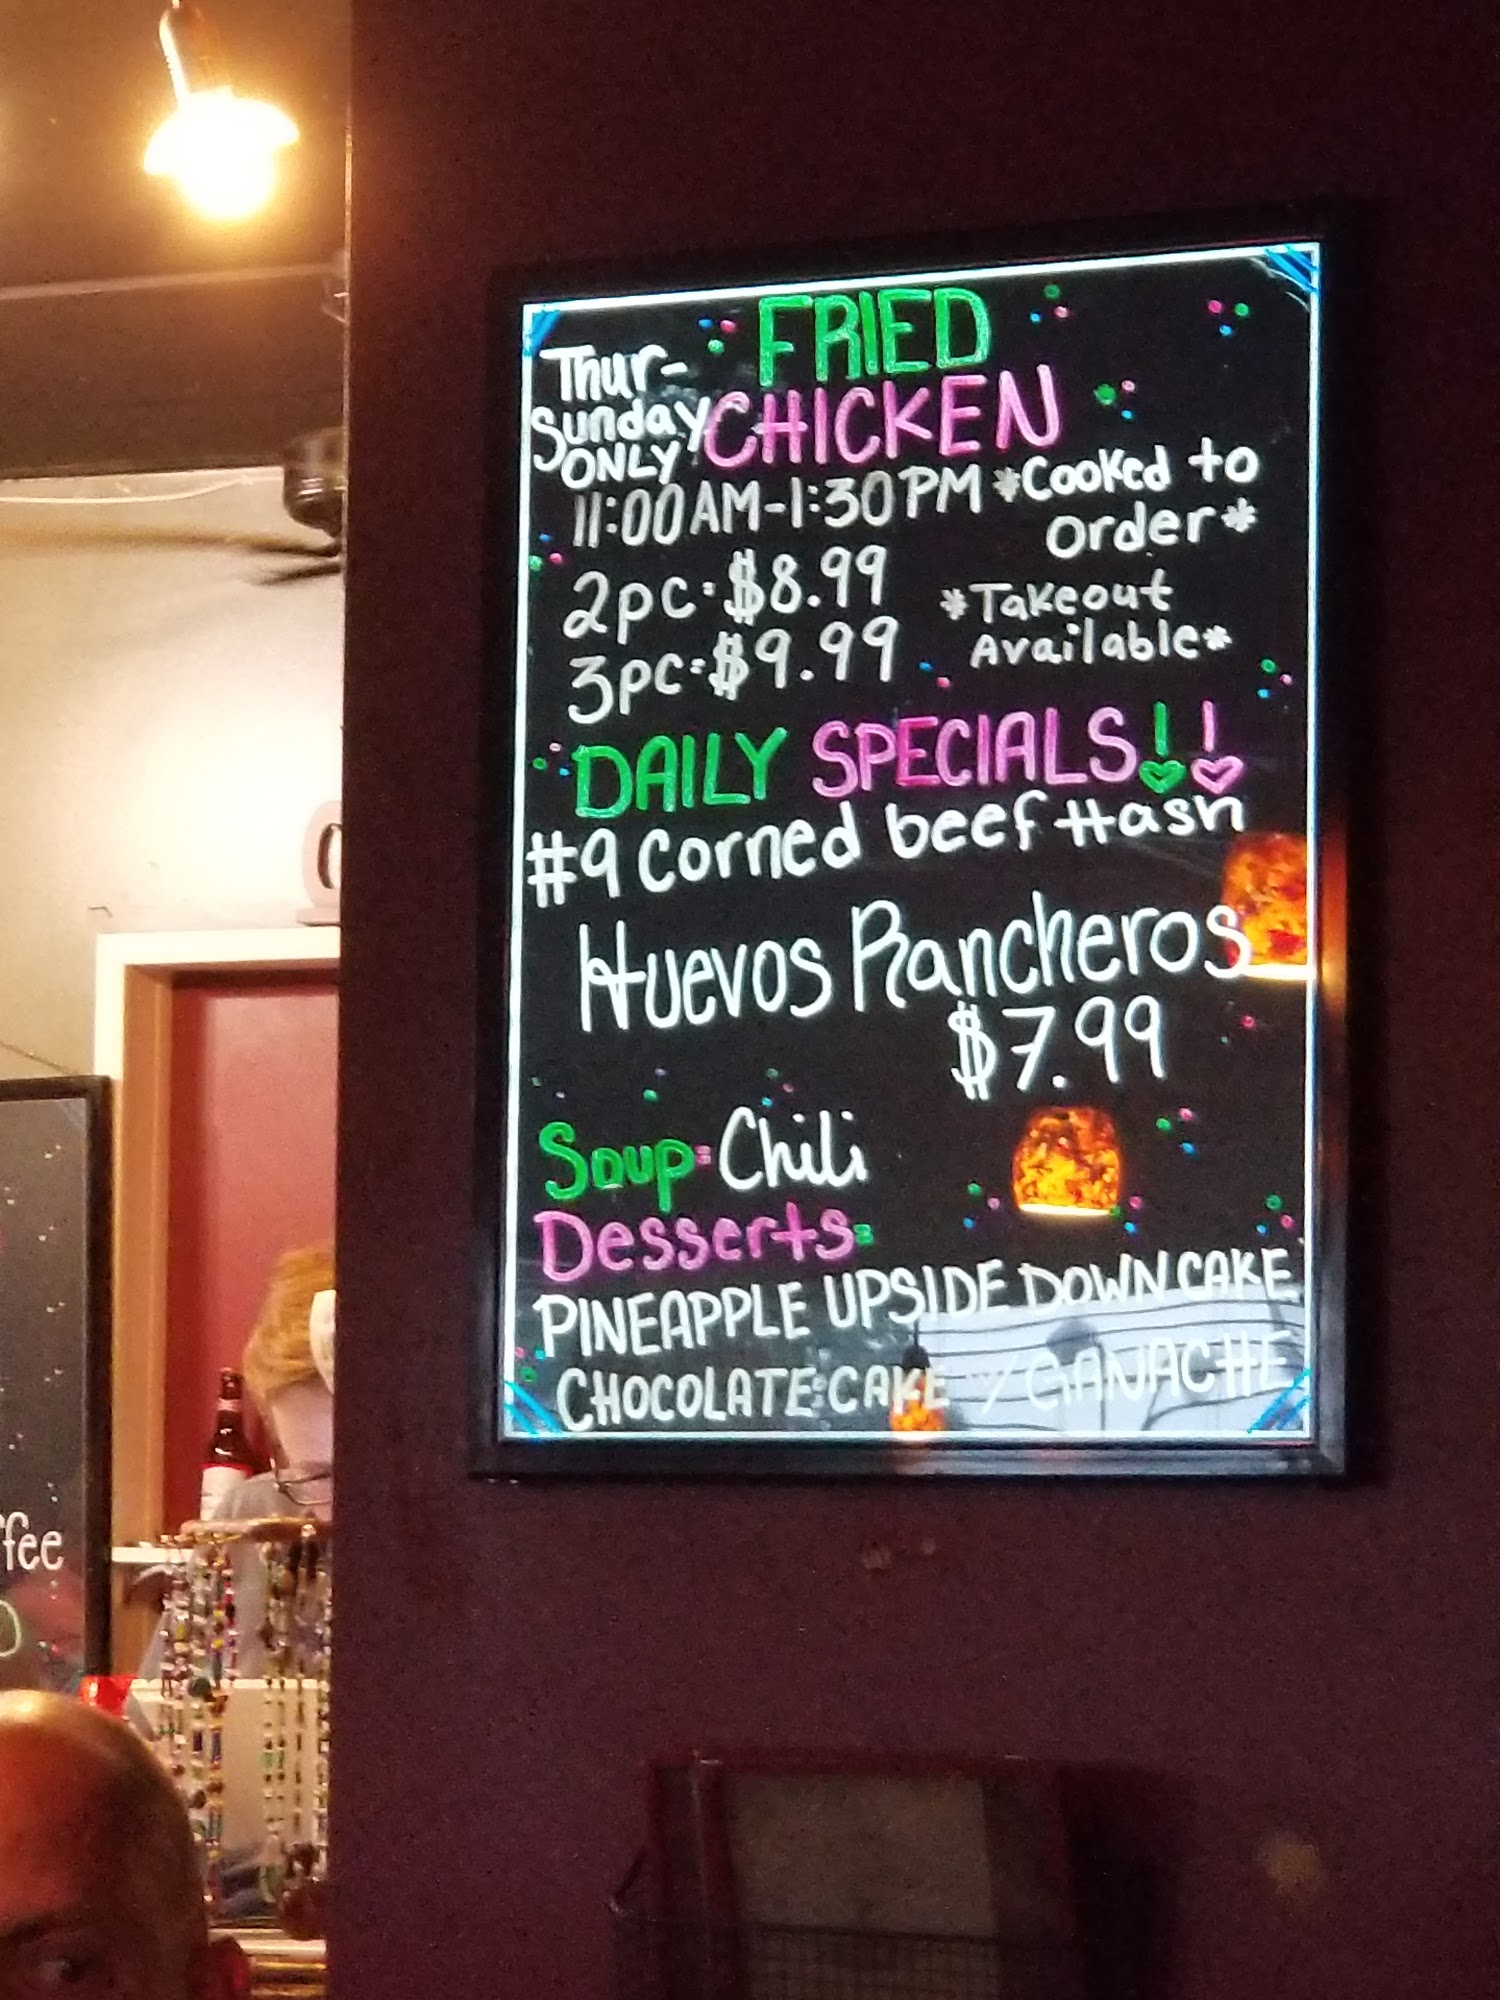 FRIED
CHICKEN
Thur-
Sunday
ONLY
11:00AM-1:30PM
*Cooked to
order*
2pc: $8.99
3pc: $9.99
*Takeout
Available*
DAILY SPECIALS!!
#9 Corned beef Hash
Huevos Rancheros
$7.99
Soup: Chili
Desserts:
PINEAPPLE UPSIDE DOWN CAKE
CHOCOLATE CAKE w/ GANACHE
ffee